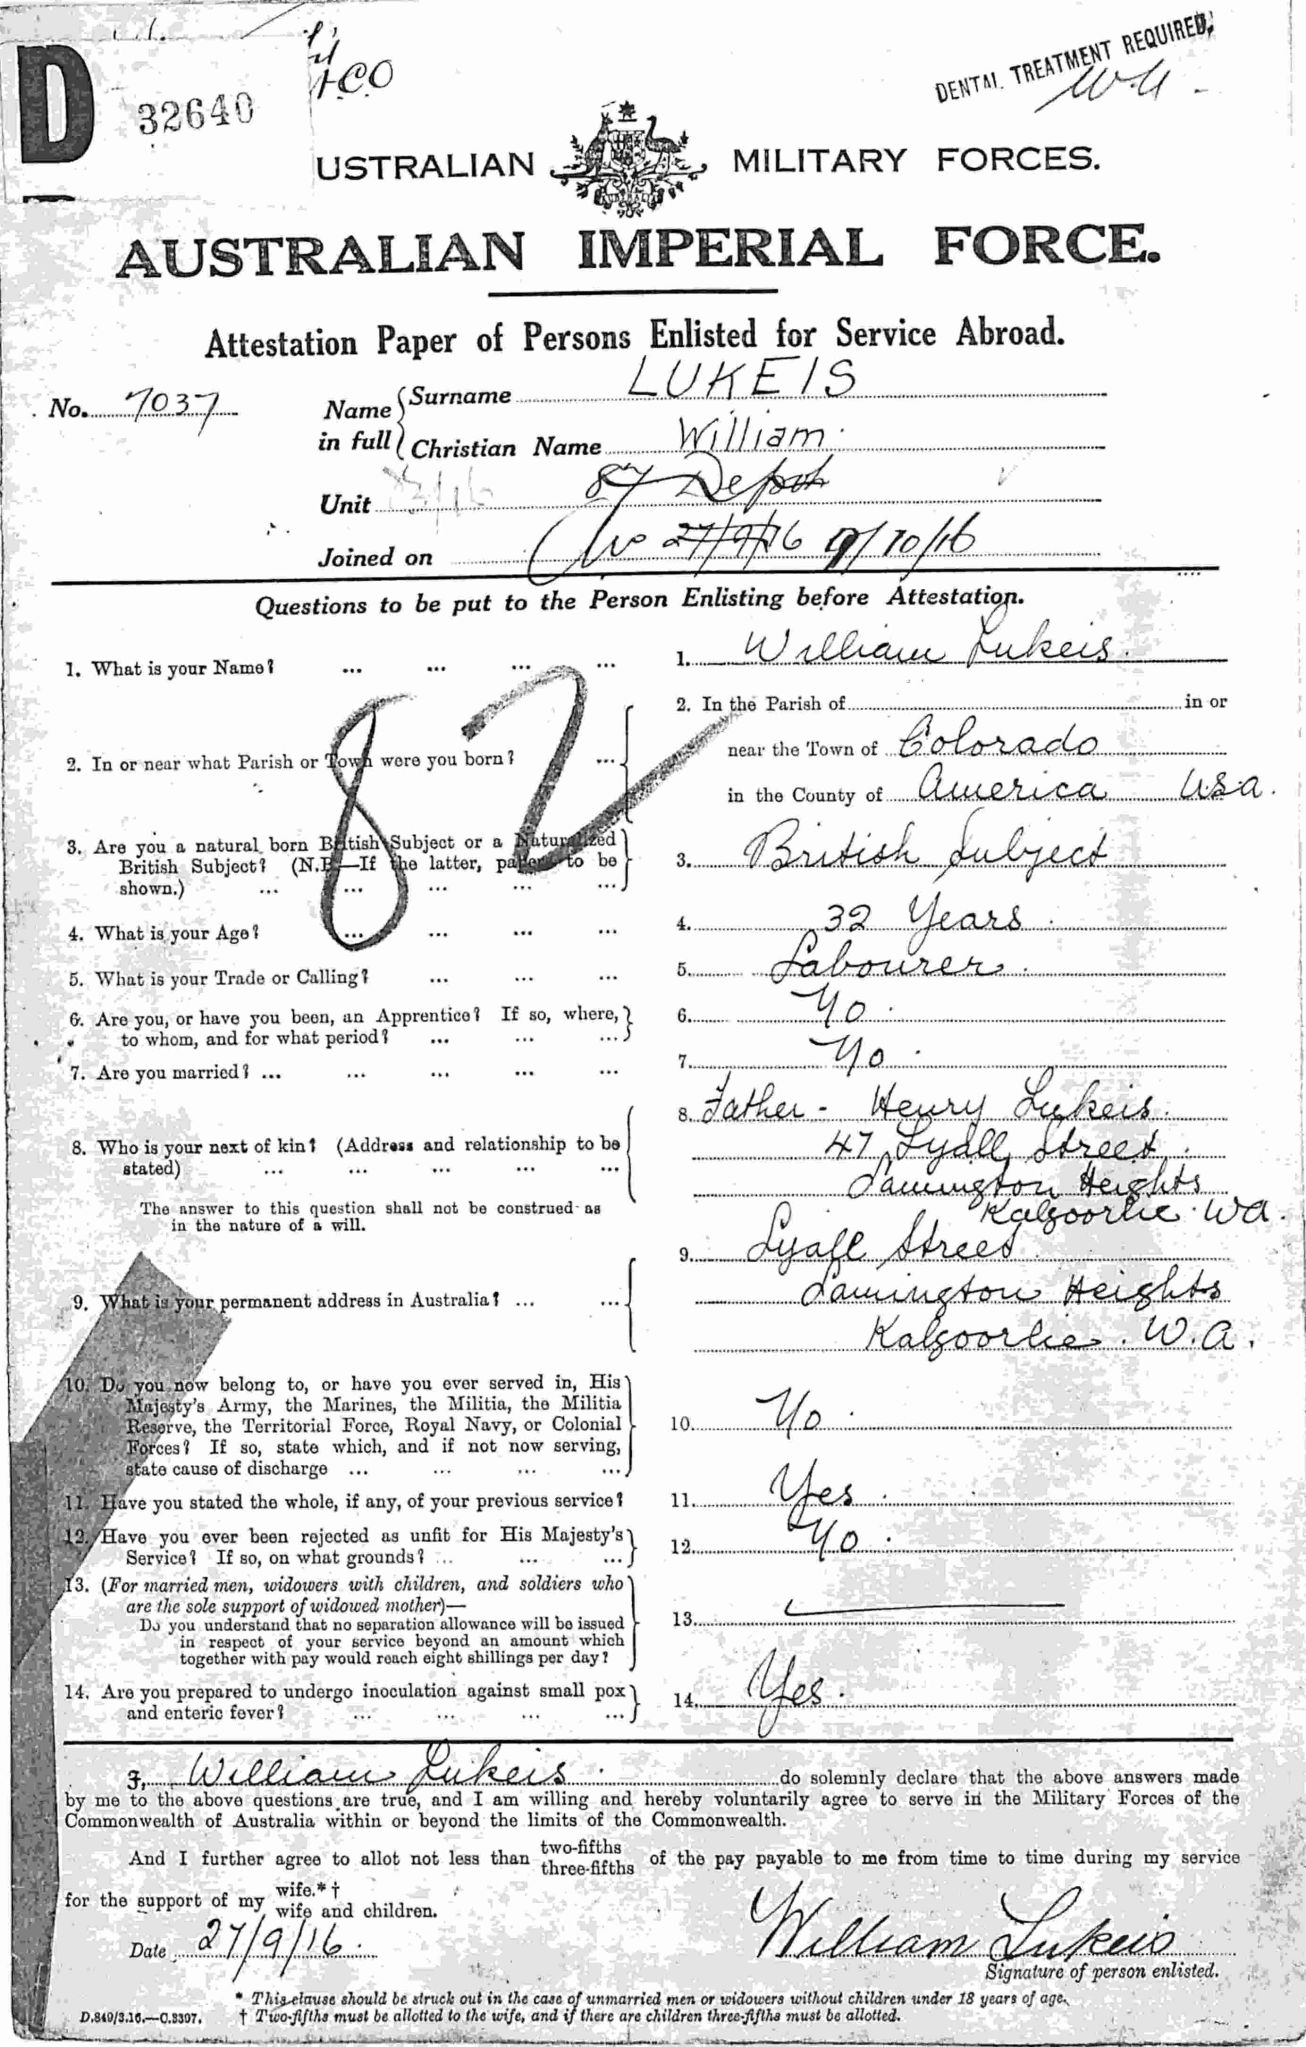 D 32640
H.C.O
DENTAL TREATMENT REQUIRED.
USTRALIAN MILITARY FORCES.
AUSTRALIAN IMPERIAL FORCE.
Attestation Paper of Persons Enlisted for Service Abroad.
No. 7037
Name in full { Surname LUKEIS
Christian Name William.
Unit 87 Depot
Joined on 27/9/16 9/10/16
Questions to be put to the Person Enlisting before Attestation.
1. What is your Name? ... ... ... ... 1. William Lukeis.
82
2. In or near what Parish or Town were you born? ... 2. In the Parish of in or
near the Town of Colorado
in the County of America USA.
3. Are you a natural born British Subject or a Naturalized
British Subject? (N.B.—If the latter, papers to be
shown.) ... ... ... ... ... 3. British Subject
4. What is your Age? ... ... ... ... 4. 32 Years.
5. What is your Trade or Calling? ... ... ... 5. Labourer.
6. Are you, or have you been, an Apprentice? If so, where,
to whom, and for what period? ... ... ... 6. No.
7. Are you married? ... ... ... ... ... 7. No.
8. Who is your next of kin? (Address and relationship to be
stated) ... ... ... ... ...
The answer to this question shall not be construed as
in the nature of a will.
8. Father - Henry Lukeis.
47 Lyall Street.
Lamington Heights
Kalgoorlie. WA.
9. What is your permanent address in Australia? ... ...
9. Lyall Street
Lamington Heights
Kalgoorlie. W.A.
10. Do you now belong to, or have you ever served in, His
Majesty's Army, the Marines, the Militia, the Militia
Reserve, the Territorial Force, Royal Navy, or Colonial
Forces? If so, state which, and if not now serving,
state cause of discharge ... ... ... ... 10. No.
11. Have you stated the whole, if any, of your previous service? 11. Yes.
12. Have you ever been rejected as unfit for His Majesty's
Service? If so, on what grounds? ... ... ... 12. No.
13. (For married men, widowers with children, and soldiers who
are the sole support of widowed mother)—
Do you understand that no separation allowance will be issued
in respect of your service beyond an amount which
together with pay would reach eight shillings per day? 13.
14. Are you prepared to undergo inoculation against small pox
and enteric fever? ... ... ... ... 14. Yes.
I, William Lukeis. do solemnly declare that the above answers made
by me to the above questions are true, and I am willing and hereby voluntarily agree to serve in the Military Forces of the
Commonwealth of Australia within or beyond the limits of the Commonwealth.
And I further agree to allot not less than two-fifths three-fifths of the pay payable to me from time to time during my service
for the support of my wife.*† wife and children.
Date 27/9/16.
William Lukeis
Signature of person enlisted.
* This clause should be struck out in the case of unmarried men or widowers without children under 18 years of age.
D.849/3.16.—C.3397. † Two-fifths must be allotted to the wife, and if there are children three-fifths must be allotted.